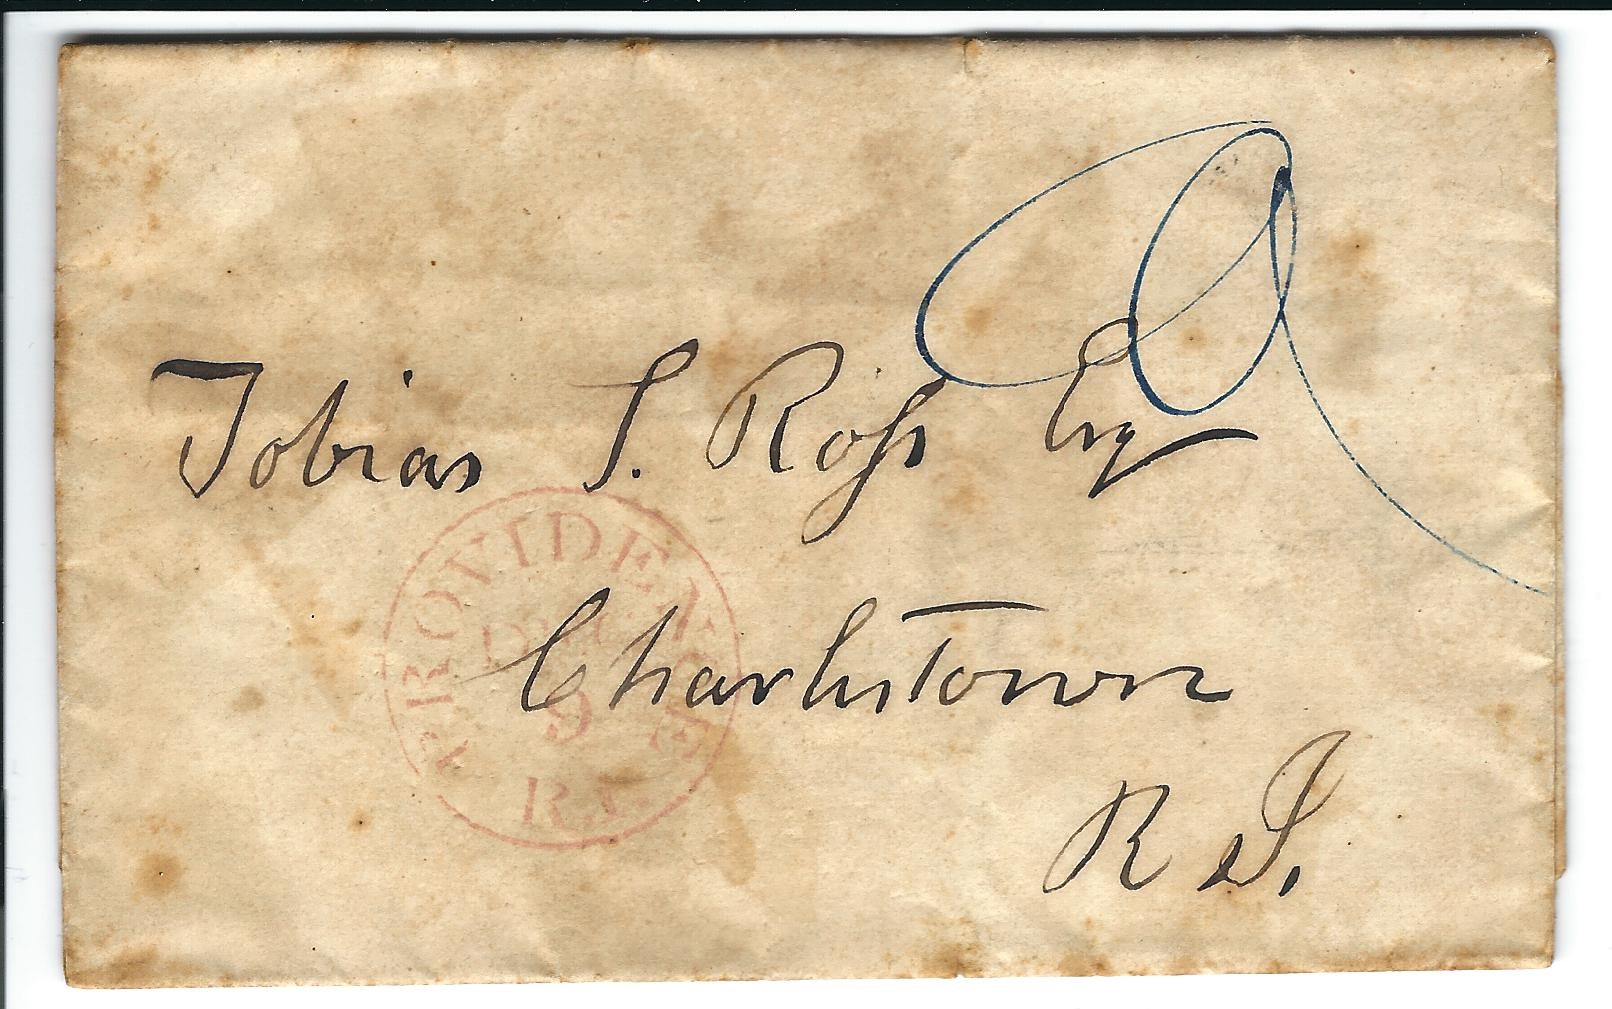 Tobias S. Ross Esq
PROVIDENCE
DEC
9
R.I.
Charlestown
R I.